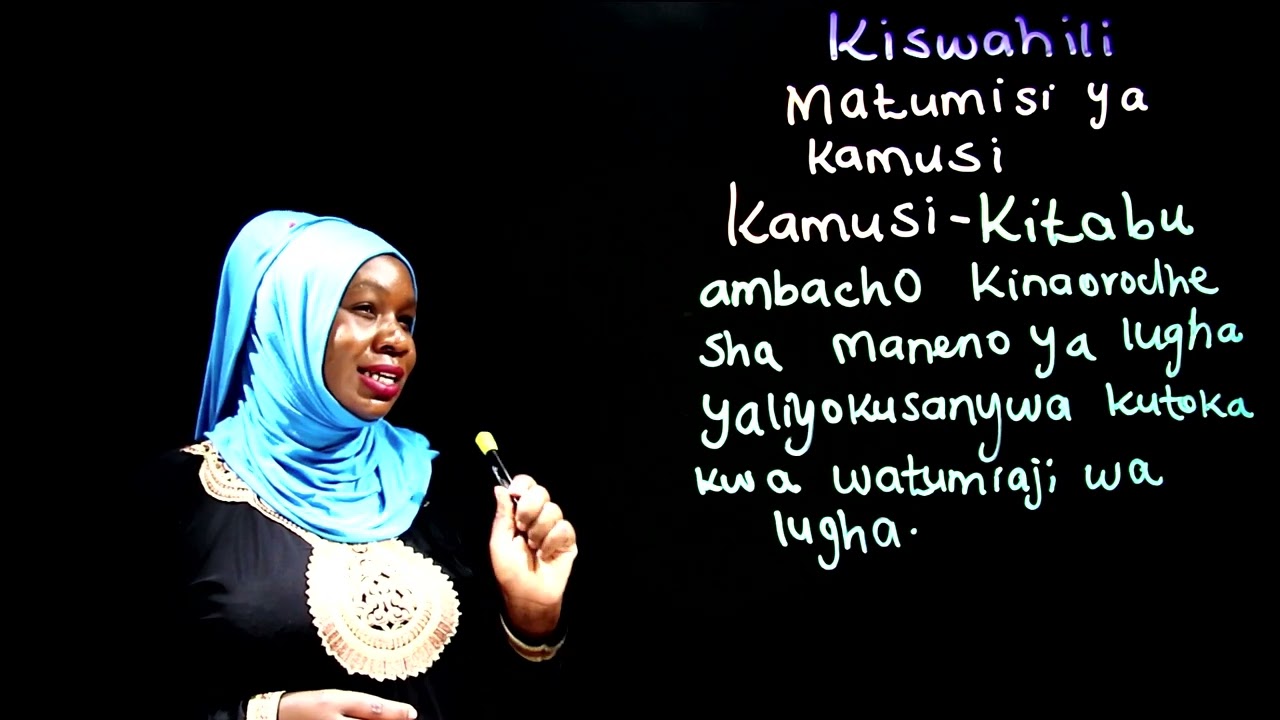 Kiswahili
Matumisi ya
kamusi
Kamusi-Kitabu
ambacho kinaorodhe
sha maneno ya lugha
yaliyokusanywa kutoka
kwa watumiaji wa
lugha.